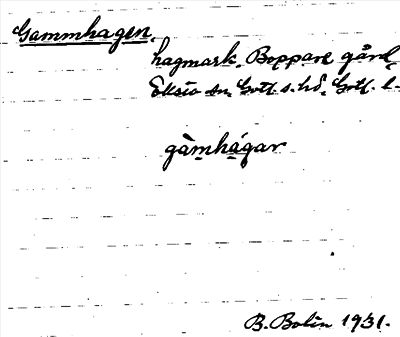 Gammhagen.
hagmark, Boppare gård,
Eksta sn. Gotl. s. hd. Gotl. l.
gàmhágar.
B. Bolin 1931.